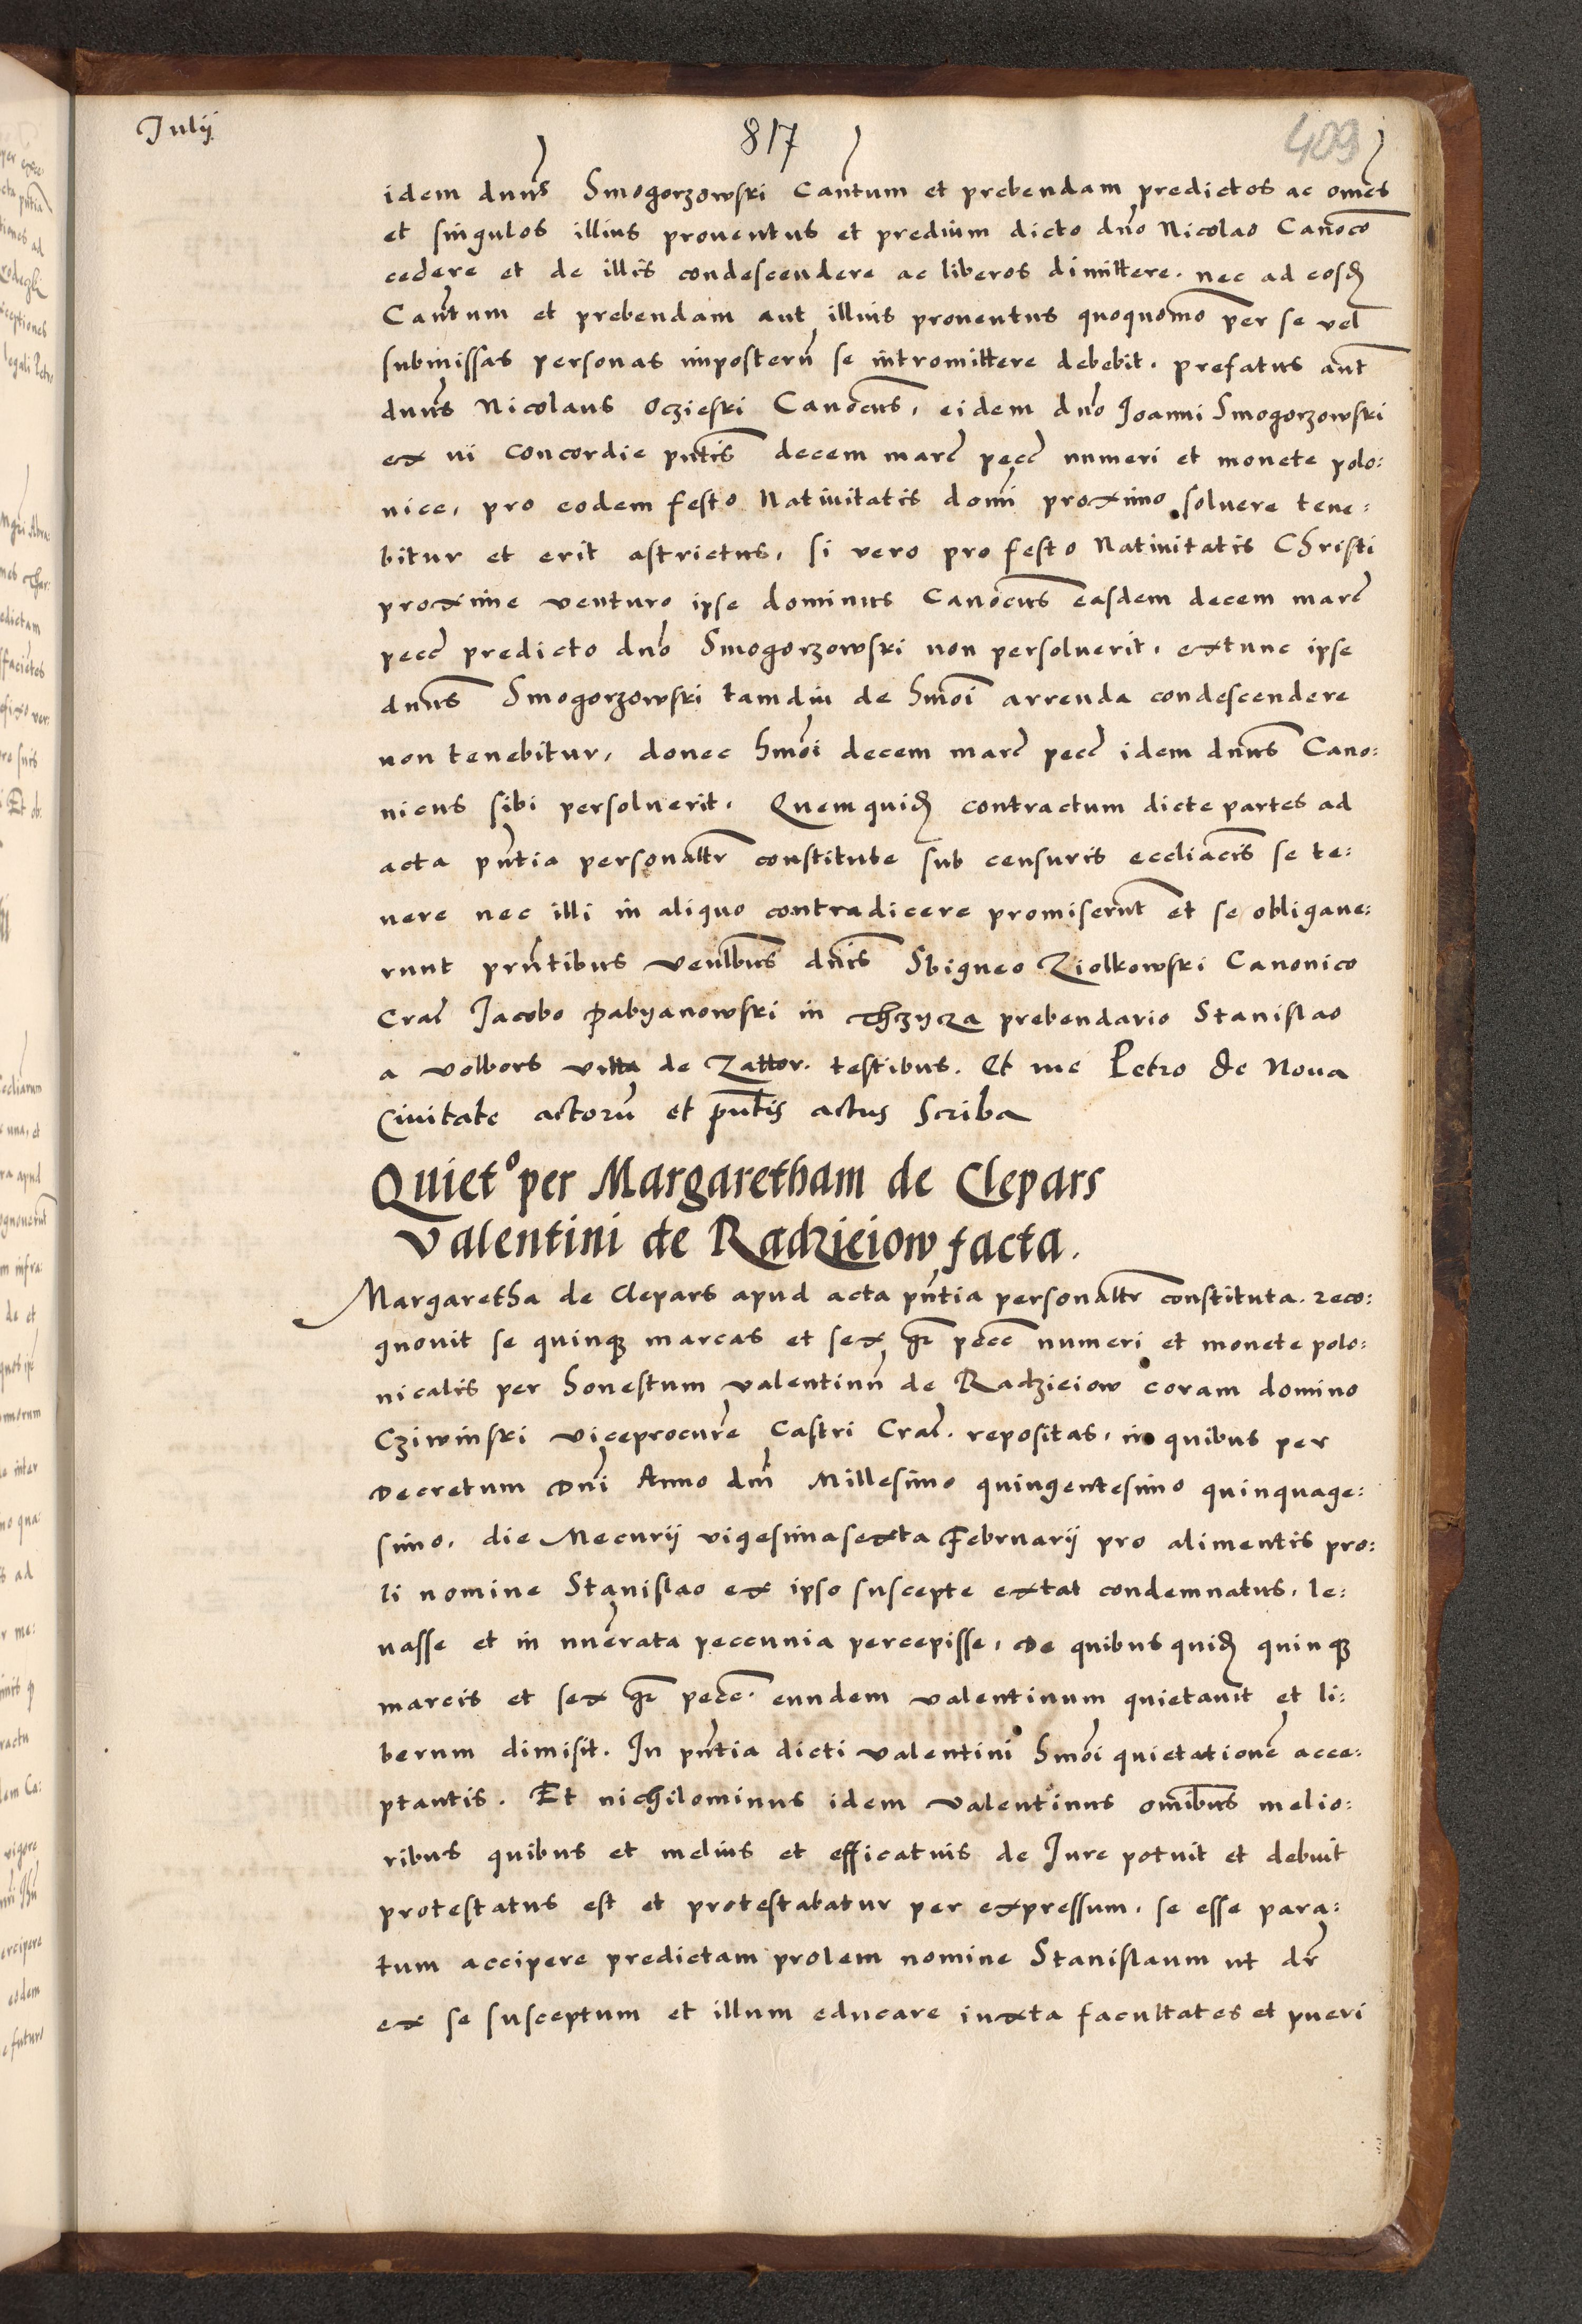 Julij
817
409
idem dnus Smogorzowski Cantum et prebendam predictos ac omes
et singulos illius proventus et predium dicto dno Nicolao Canoco
cedere et de illis condescendere ac liberos dimittere. nec ad eosd
Cantum et prebendam aut illius proventus quoquomo per se vel
submissas personas imposteru se intromittere debebit. prefatus aut
dnus Nicolaus Oczieski Canocus, eidem dno Joanni Smogorzowski
ex vi concordie pntis decem marc pecc numeri et monete polo:
nice, pro eodem festo Nativitatis domi proximo solvere tene:
bitur et erit astrictus, si vero pro festo Nativitatis Christi
proxime venturo ipse dominus Canocus easdem decem marc
pecc predicto dno Smogorzowski non persolverit, extunc ipse
dnus Smogorzowski tamdiu de hmoi arrenda condescendere
non tenebitur, donec hmoi decem marc pecc idem dnus Cano:
nicus sibi persolverit. Quem quid contractum dicte partes ad
acta pntia personaltr constitute sub censuris eccliacis se te:
nere nec illi in aliquo contradicere promiserunt et se obligave:
runt prntibus venlbus dnis Sbigneo Ziolkowski Canonico
Cral Jacobo Pabyanowski in Thzycza prebendario Stanislao
a volbors villa de Zattor. testibus. Et me Petro de Nova
Civitate actoru et pntis actus Scriba
Quieto per Margaretham de Clepars
Valentini de Radzieiow facta.
Margaretha de Clepars apud acta pntia personaltr constituta. reco:
gnovit se quinq marcas et sex gr pecc numeri et monete polo:
nicalis per honestum Valentinu de Radzieiow coram domino
Cziwinski viceprocure Castri Cral. repositas, in quibus per
Decretum Dni Anno dni Millesimo quingentesimo quinquage:
simo, die Mecurij vigesimasexta Februarij pro alimentis pro:
li nomine Stanislao ex ipso suscepte extat condemnatus, le:
vasse et in nuerata peccunia percepisse, De quibus quid quinq
marcis et sex gr pecc. eundem Valentinum quietavit et li:
berum dimisit. In pntia dicti Valentini hmoi quietatione acce:
ptantis. Et nichilominus idem Valentinus omibus melio:
ribus quibus et melius et efficatius de Jure potuit et debuit
protestatus est et protestabatur per expressum, se esse para:
tum accipere predictam prolem nomine Stanislaum ut dr
ex se susceptum et illum educare iuxta facultates et pueri